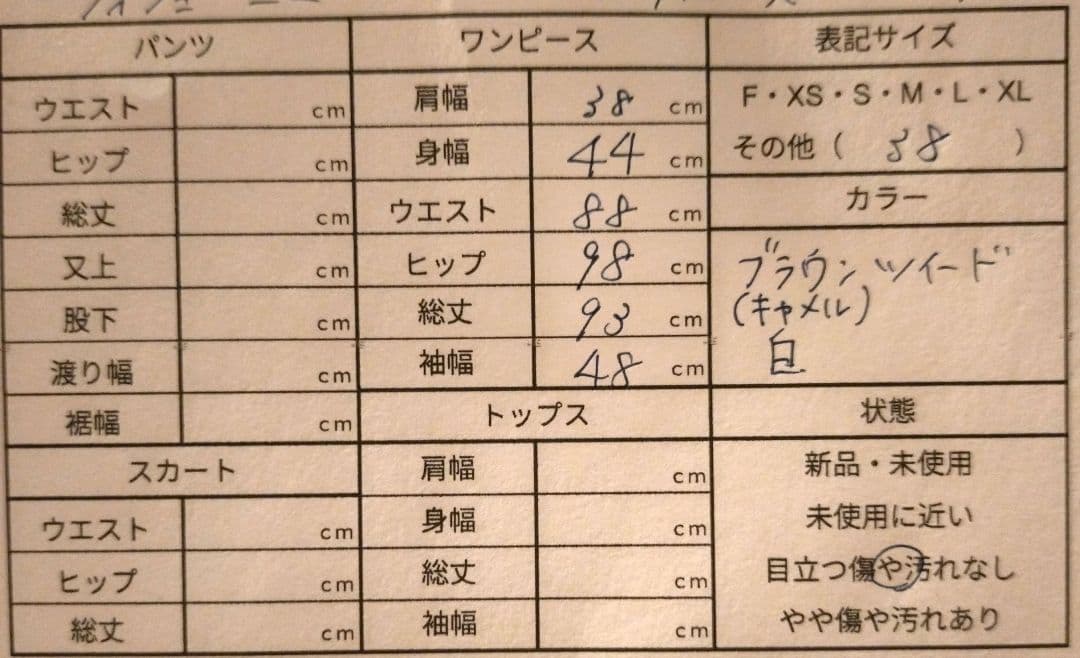 パンツ
ウエスト cm
ヒップ cm
総丈 cm
又上 cm
股下 cm
渡り幅 cm
裾幅 cm
スカート
ウエスト cm
ヒップ cm
総丈 cm
ワンピース
肩幅 38 cm
身幅 44 cm
ウエスト 88 cm
ヒップ 98 cm
総丈 93 cm
袖幅 48 cm
トップス
肩幅 cm
身幅 cm
総丈 cm
袖幅 cm
表記サイズ
F・XS・S・M・L・XL
その他（ 38 ）
カラー
ブラウンツイード
(キャメル)
白
状態
新品・未使用
未使用に近い
目立つ傷や汚れなし
やや傷や汚れあり